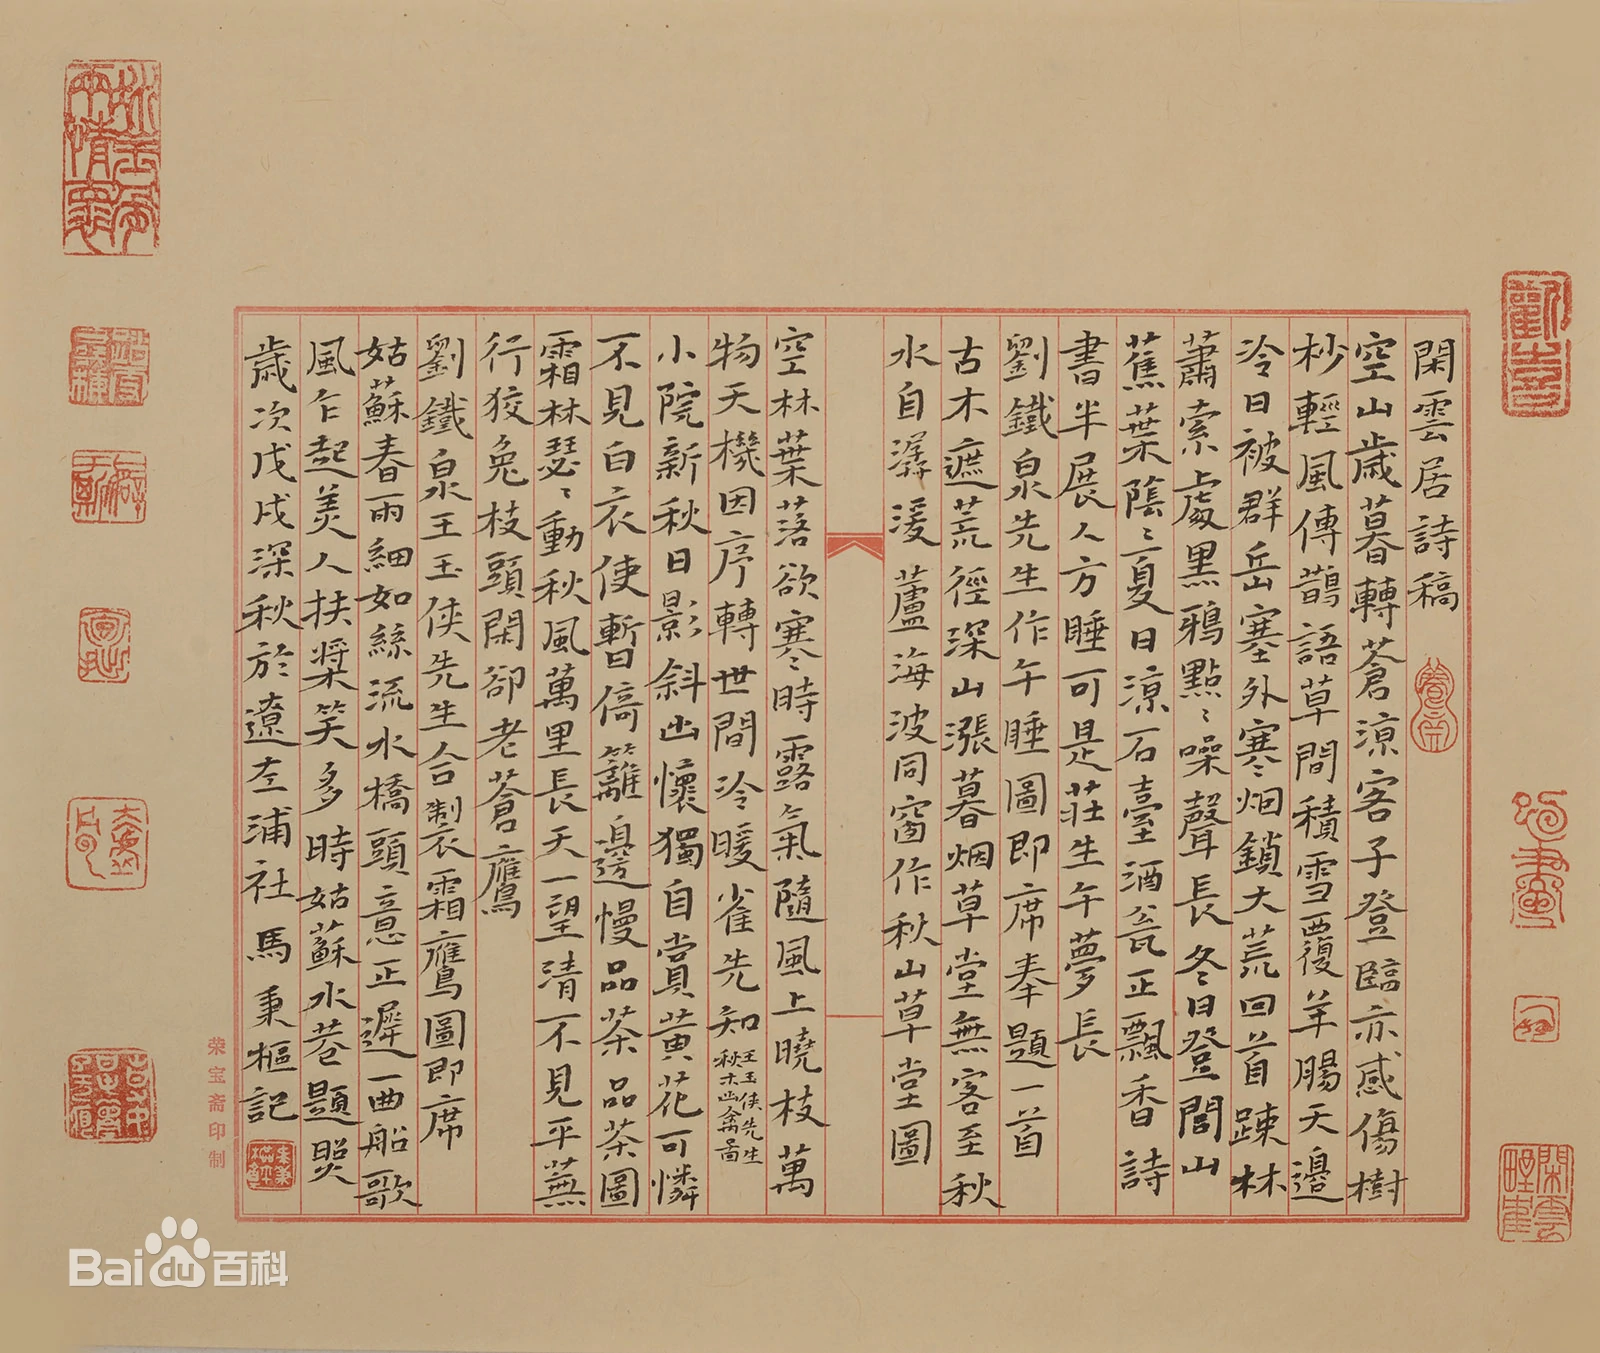 閑雲居詩稿
空山歲暮轉蒼涼客子登臨亦感傷樹
杪輕風傳鵲語草間積雪覆羊腸天邊
冷日被群岳塞外寒烟鎖大荒回首踈林
蕭索處黑鴉點〻噪聲長冬日登閭山
蕉葉蔭〻夏日涼石臺酒瓮正飄香詩
書半展人方睡可是莊生午夢長
劉鐵泉先生作午睡圖即席奉題一首
古木遮荒徑深山漲暮烟草堂無客至秋
水自潺湲蘆海波同窗作秋山草堂圖
空林葉落欲寒時露氣隨風上曉枝萬
物天機因序轉世間冷暖雀先知王玉俠先生秋木幽禽圖
小院新秋日影斜幽懷獨自賞黃花可憐
不見白衣使暫倚籬邊慢品茶品茶圖
霜林瑟〻動秋風萬里長天一望清不見平蕪
行狡兔枝頭閑卻老蒼鷹
劉鐵泉王玉俠先生合制衣霜鷹圖即席
姑蘇春雨細如絲流水橋頭意正遲一曲船歌
風乍起美人扶槳笑多時姑蘇水巷題照
歲次戊戌深秋於遼左浦社馬秉樞記
荣宝斋印制
Bai百科